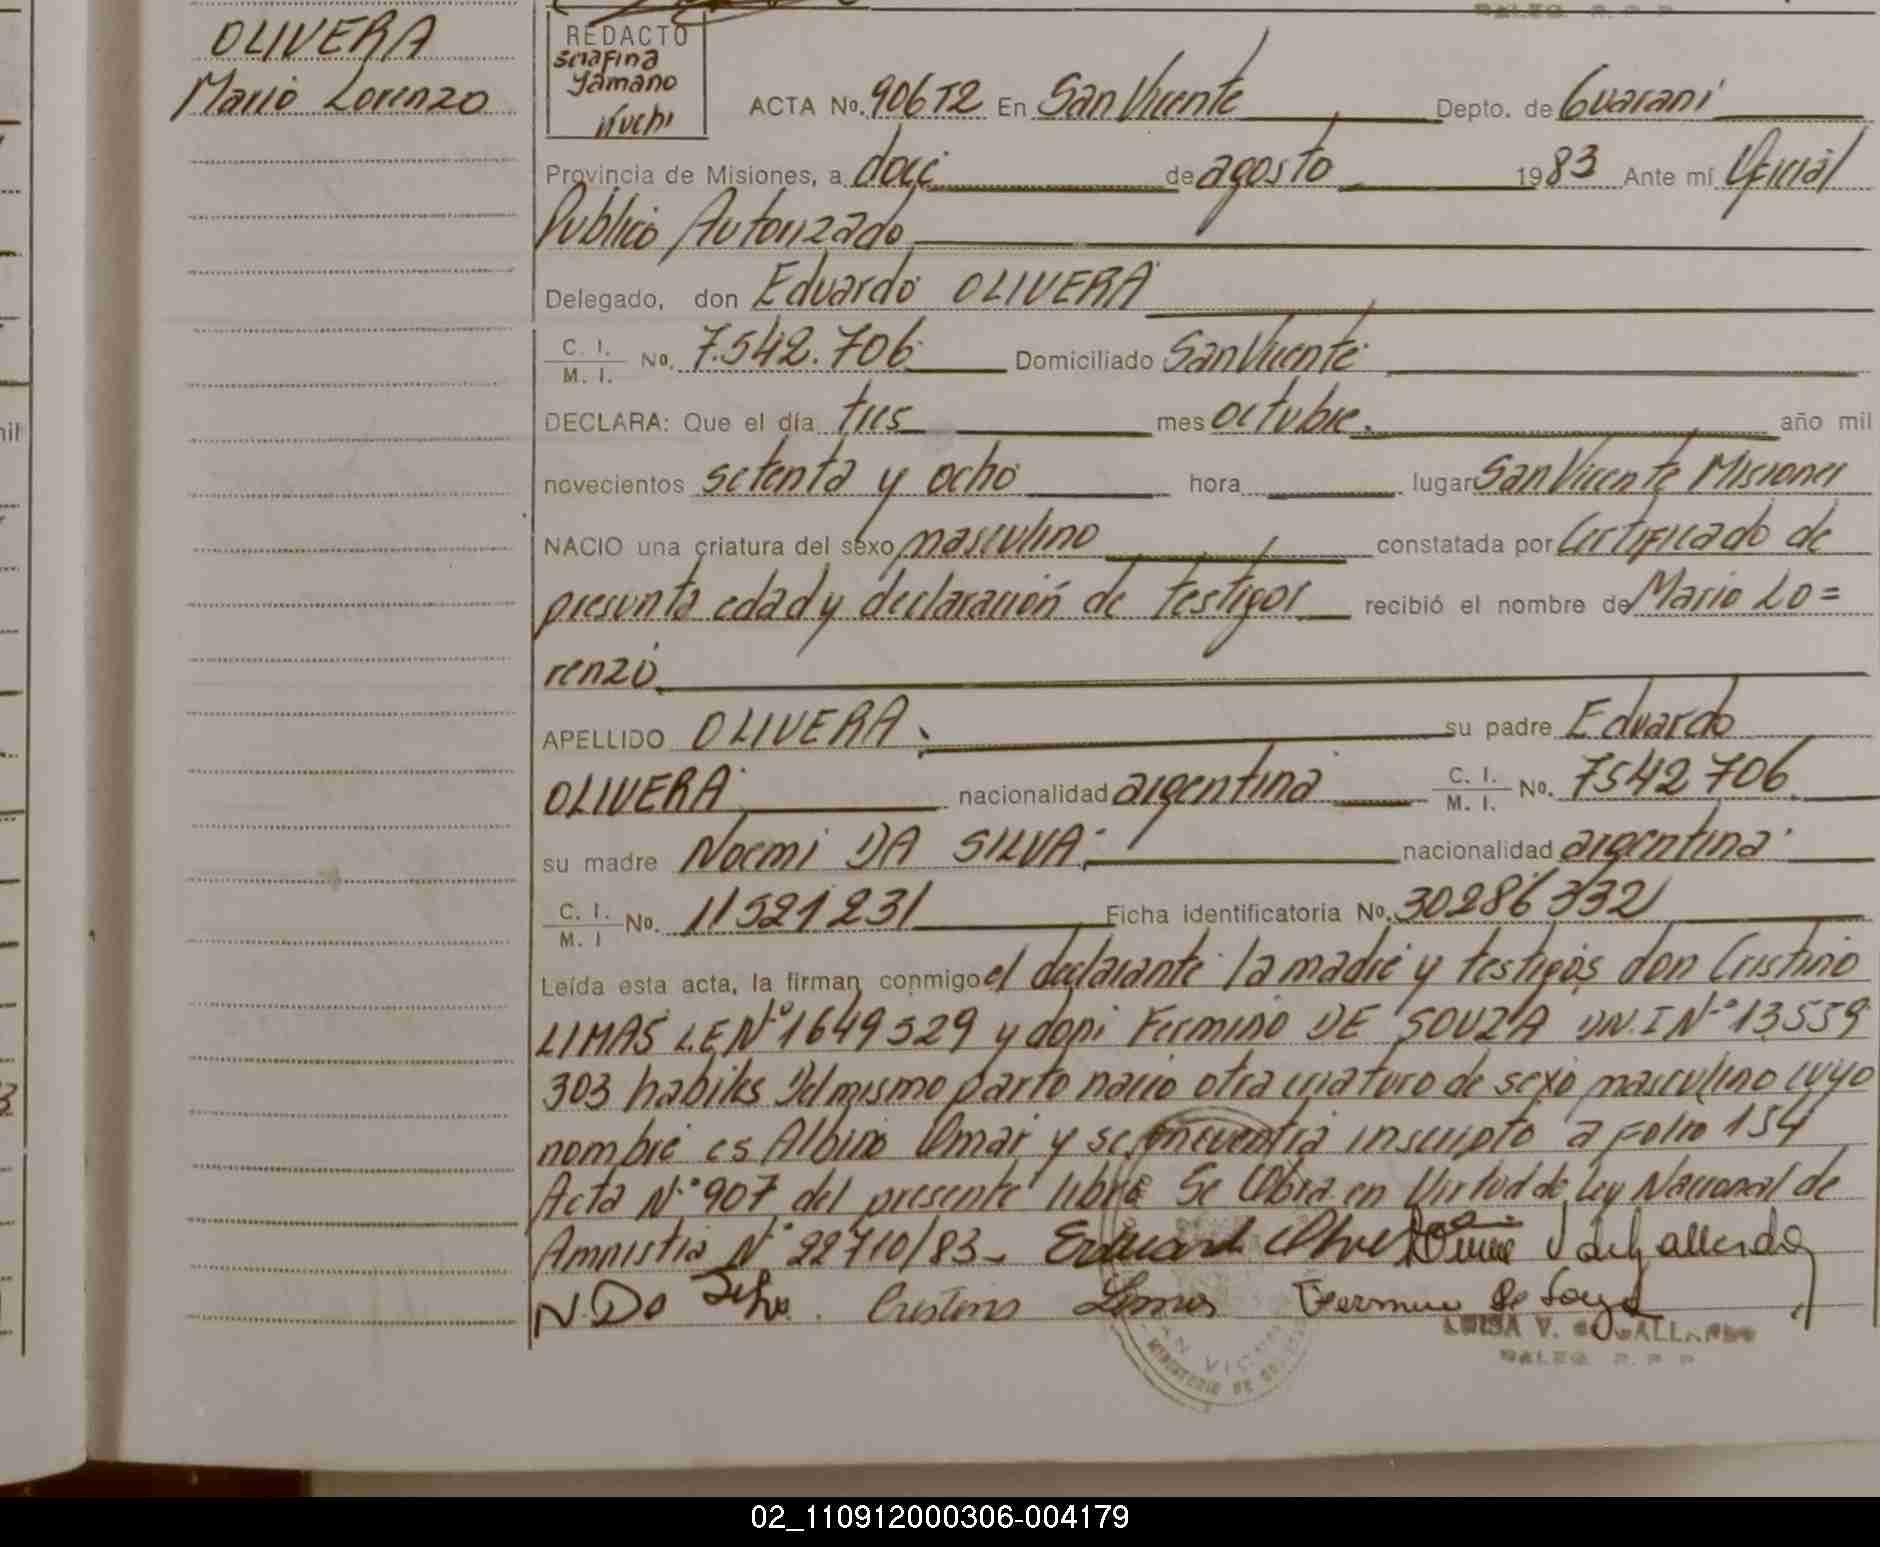 OLIVERA
Mario Lorenzo
REDACTO
Serafina
Yamano
ACTA No. 906 T2 En San Vicente Depto. de Guarani
Provincia de Misiones, a doce de agosto 1983 Ante mí Oficial
Publico Autorizado
Delegado, don Eduardo OLIVERA
C. I. / M. I. No. 7.542.706 Domiciliado San Vicente
DECLARA: Que el día tres mes octubre. año mil
novecientos setenta y ocho hora lugar San Vicente Misiones
NACIO una criatura del sexo masculino constatada por Certificado de
presunta edad y declaración de testigos recibió el nombre de Mario Lo=
renzo
APELLIDO OLIVERA su padre Eduardo
OLIVERA nacionalidad argentina C. I. / M. I. No. 7542706
su madre Noemi DA SILVA nacionalidad argentina
C. I. / M. I No. 11521231 Ficha identificatoria No. 30286332
Leída esta acta, la firman conmigo el declarante la madre y testigos don Cristino
LIMAS L.E Nº 1649529 y don Fermino DE SOUZA DN.I Nº 13559
303 habiles Del mismo parto nacio otra criatura de sexo masculino cuyo
nombre es Albino Omar y se encuentra inscripto a Folio 154
Acta Nº 907 del presente libro Se Obra en Virtud de Ley Nacional de
Amnistia Nº 22710/83-
N. Da Silva. Cristino Limas Fermino de Souza
LUISA V.
02_110912000306-004179